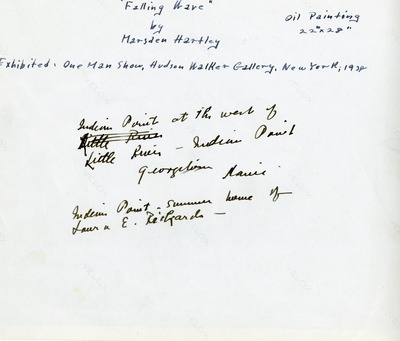 "Falling Wave"
by
Marsden Hartley
Oil Painting
22"x28"
Exhibited: One Man Show, Hudson Walker Gallery, New York, 1938
Indian Point at the west of
Little River
Little River – Indian Point
Georgetown Maine
Indian Point – summer home of
Laura E. Richards –